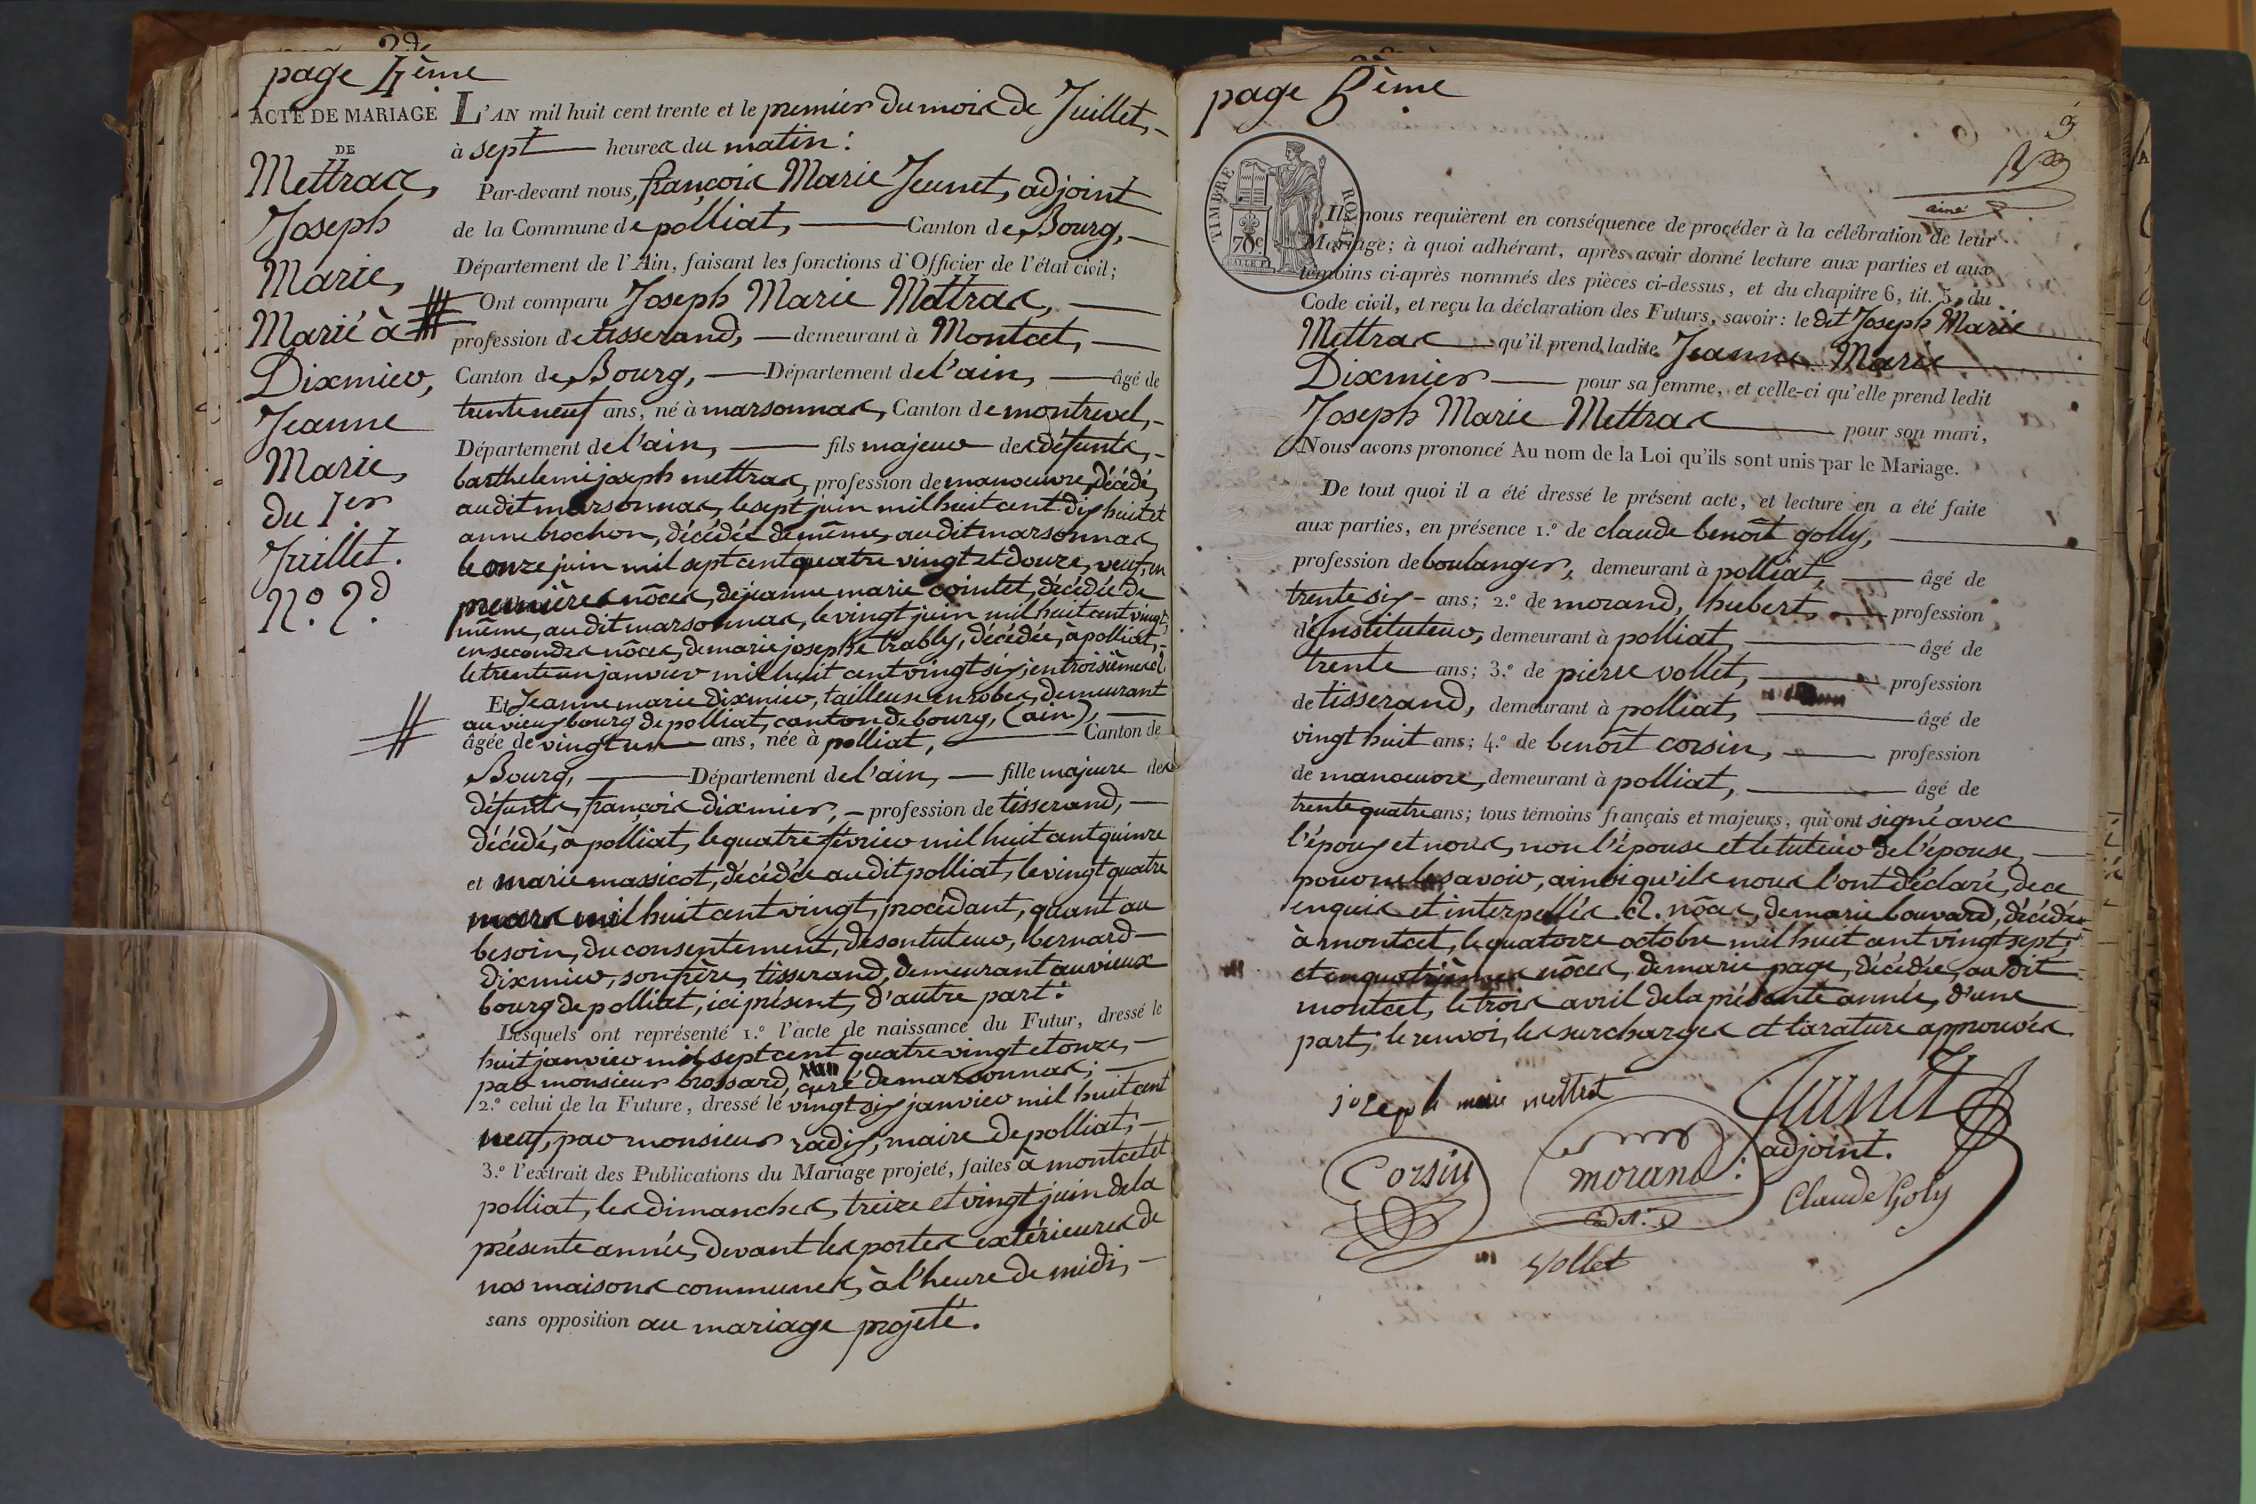 page 4ème
ACTE DE MARIAGE
DE
Mettras,
Joseph
Marie,
Marié à
Dixmier,
Jeanne
Marie,
du 1er
Juillet.
N.º 2.d
L'AN mil huit cent trente et le premier du mois de Juillet,
à sept heures du matin:
Par-devant nous, françois Marie Jeunet, adjoint
de la Commune de polliat, Canton de Bourg,
Département de l'Ain, faisant les fonctions d'Officier de l'état civil;
Ont comparu Joseph Marie Mettras,
profession de tisserand, demeurant à Montcet,
Canton de Bourg, Département de l'ain, âgé de
trente neuf ans, né à marsonnas, Canton de montrevel,
Département de l'ain, fils majeur des défunts,
barthelemi joseph mettras, profession de manoeuvre, décédé,
audit marsonnas, le sept juin mil huit cent dix huit et
anne brochon, décédée de même, audit marsonnas
le onze juin mil sept cent quatre vingt et douze, veuf, en
premières nôces, de jeanne marie cointet, décédée de
même, audit marsonnas, le vingt juin mil huit cent vingt,
en secondes nôces, de marie josephe trably, décédée, à polliat,
le trente un janvier mil huit cent vingt six; en troisièmes
Et Jeanne marie dixmier, tailleuse en robes, demeurant
au vieux bourg de polliat, canton de bourg, (ain),
âgée de vingt un ans, née à polliat, Canton de
Bourg, Département de l'ain, fille majeure des
défunts, françois dixmier, profession de tisserand,
décédé, à polliat, le quatre février mil huit cent quinze
et marie massicot, décédée audit polliat, le vingt quatre
mars mil huit cent vingt, procédant, quant au
besoin, du consentement, de son tuteur, bernard
Dixmier, son frère, tisserand, demeurant au vieux
bourg de polliat, ici présent, d'autre part:
Lesquels ont représenté 1.º l'acte de naissance du Futur, dressé le
huit janvier mil sept cent quatre vingt et onze,
par monsieur brossard, curé de marsonnas;
2.º celui de la Future, dressé le vingt six janvier mil huit cent
neuf, par monsieur radix, maire de polliat;
3.º l'extrait des Publications du Mariage projeté, faites à montcet et
polliat, les dimanches, treize et vingt juin de la
présente année, devant les portes extérieures de
nos maisons communes, à l'heure de midi,
sans opposition au mariage projeté.
page 5ème
3
ainé
TIMBRE ROYAL
70c
Ils nous requièrent en conséquence de procéder à la célébration de leur
Mariage; à quoi adhérant, après avoir donné lecture aux parties et aux
témoins ci-après nommés des pièces ci-dessus, et du chapitre 6, tit. 5, du
Code civil, et reçu la déclaration des Futurs, savoir: le dit Joseph Marie
Mettras qu'il prend ladite Jeanne Marie
Dixmier pour sa femme, et celle-ci qu'elle prend ledit
Joseph Marie Mettras pour son mari,
Nous avons prononcé Au nom de la Loi qu'ils sont unis par le Mariage.
De tout quoi il a été dressé le présent acte, et lecture en a été faite
aux parties, en présence 1.º de claude benoît golly,
profession de boulanger, demeurant à polliat, âgé de
trente six ans; 2.º de morand, hubert, profession
d'Instituteur, demeurant à polliat, âgé de
trente ans; 3.º de pierre vollet, profession
de tisserand, demeurant à polliat, âgé de
vingt huit ans; 4.º de benoît corsin, profession
de manoeuvre, demeurant à polliat, âgé de
trente quatre ans; tous témoins français et majeurs, qui ont signé avec
l'époux et nous, non l'épouse et le tuteur de l'épouse,
pour ne le savoir, ainsi qu'ils nous l'ont déclaré, de ce
enquis et interpellés. nôces, de marie bouvard, décédée
à montcet, le quatorze octobre mil huit cent vingt sept;
et en quatrièmes nôces, de marie page, décédée, au dit
montcet, le trois avril de la présente année, d'une
part; le renvoi, les surcharges et la rature approuvés
joseph marie mettrat
Jeunet
adjoint.
Corsin
morand
Claude Goly
vollet